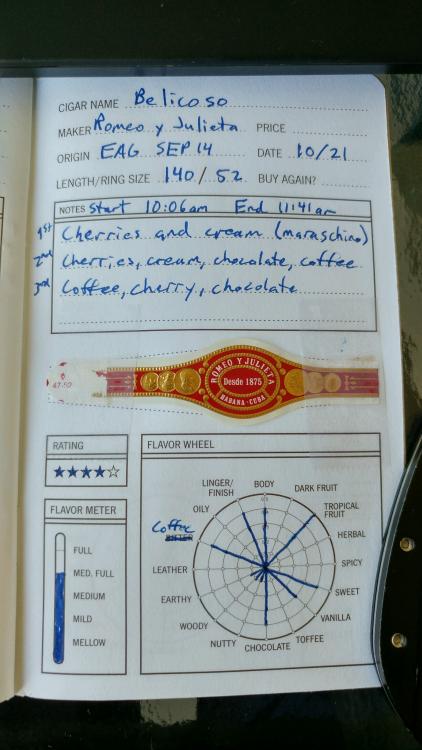 CIGAR NAME Belicoso
MAKER Romeo y Julieta PRICE
ORIGIN EAG SEP 14 DATE 10/21
LENGTH/RING SIZE 140 / 52 BUY AGAIN?
NOTES Start 10:06am End 11:41am
1st Cherries and cream (maraschino)
2nd Cherries, cream, chocolate, coffee
3rd Coffee, cherry, chocolate
47-50
ROMEO Y JULIETA
Desde 1875
HABANA-CUBA
RATING
FLAVOR WHEEL
FLAVOR METER
FULL
MED. FULL
MEDIUM
MILD
MELLOW
BODY
DARK FRUIT
TROPICAL
FRUIT
HERBAL
SPICY
SWEET
VANILLA
TOFFEE
CHOCOLATE
NUTTY
WOODY
EARTHY
LEATHER
Coffee
BITTER
OILY
LINGER/
FINISH